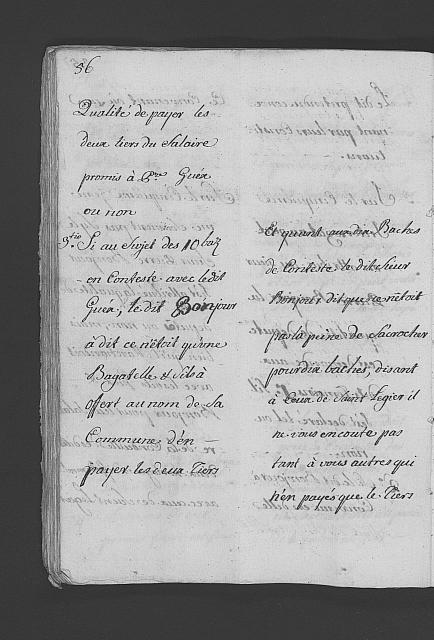 56
Qualité de payer les
deux tiers du Salaire
promis à Pre Guex
ou non
3.tio Si au Sujet des 10 baz
en Conteste avec ledit
Guéx, le dit Bonjour
à dit ce n'étoit qu'une
Bagatelle & s'il a
offert au nom de Sa
Commune d'én
payer les deux Tiers
Et quant aux dix Baches
de Conteste le dit Sieur
Bonjour dit que ce n'étoit
pas la peine de s'accrocher
pour dix baches, disant
à Ceux de Saint Legier il
ne vous en coute pas
tant à vous autres qui
n'én payés que le Tiers